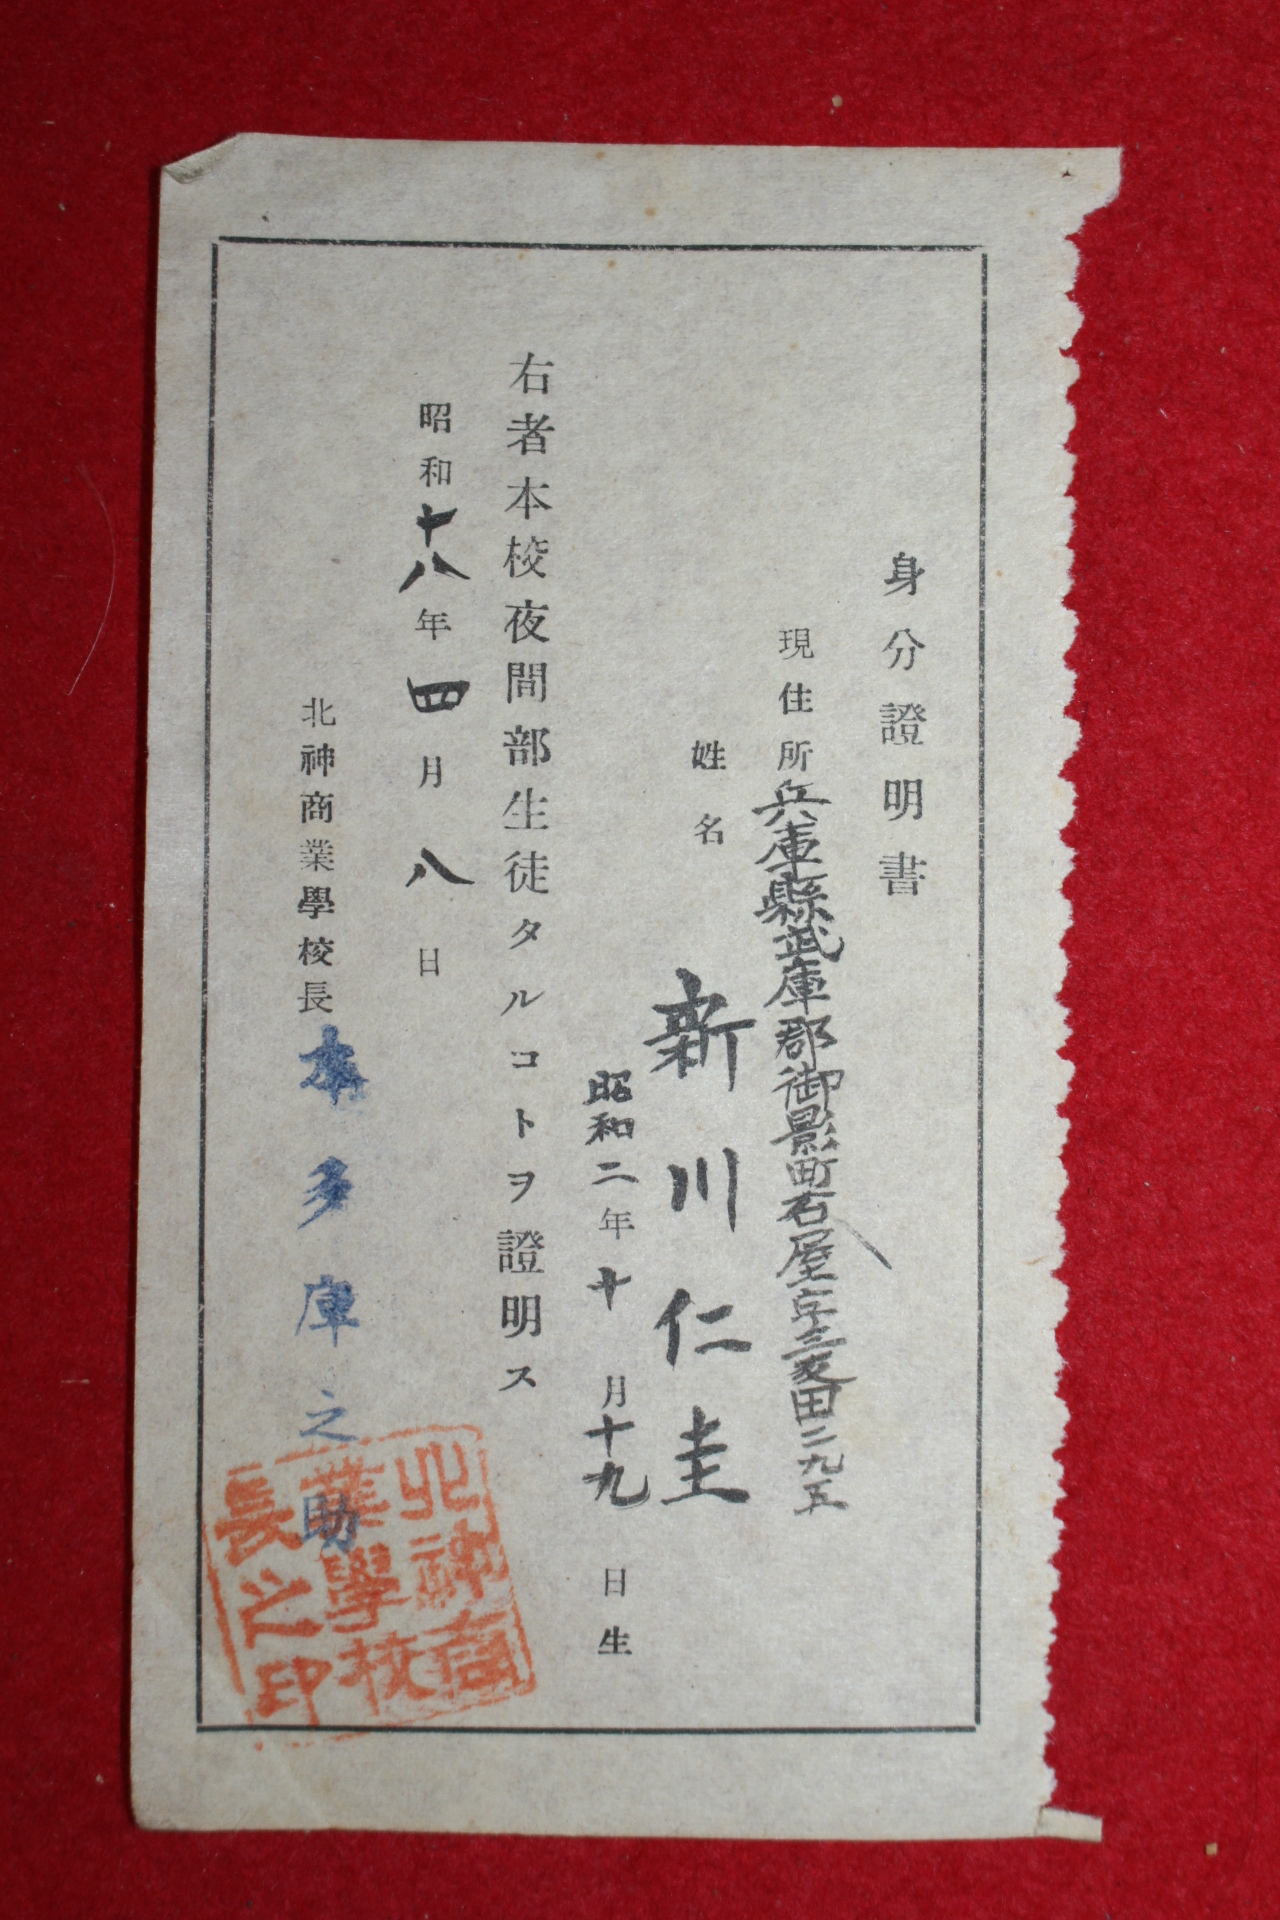 身分證明書
現住所 兵庫縣武庫郡御影町石屋字三反田二九五
姓名 新川仁圭
昭和二年十月十九日生
右者本校夜間部生徒タルコトヲ證明ス
昭和十八年四月八日
北神商業學校長 本多庫之助
北神商
業學校
長之印